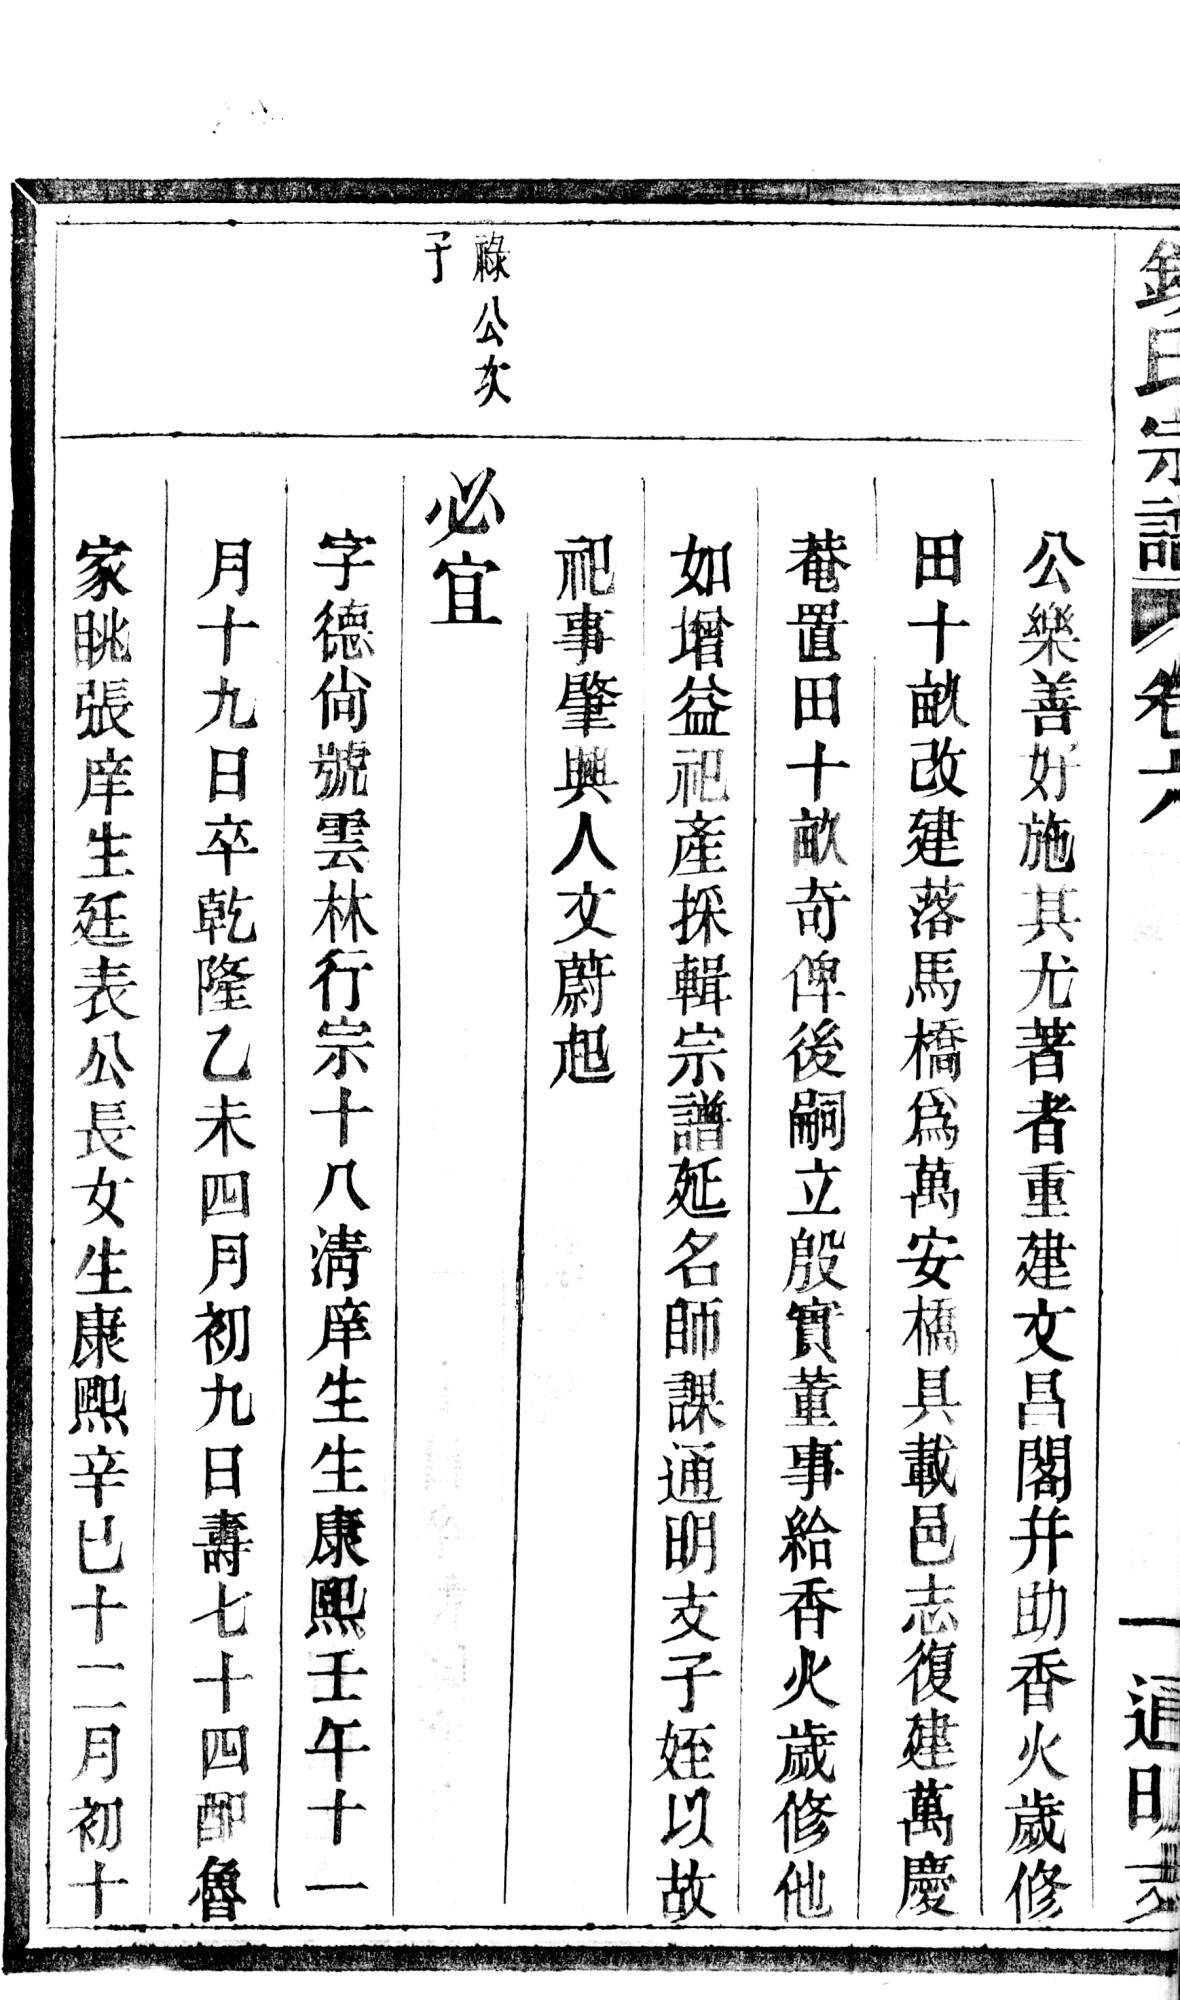 氏宗譜 卷六 一 通明支
公樂善好施其尤著者重建文昌閣并助香火歲修
田十畝改建落馬橋爲萬安橋具載邑志復建萬慶
菴置田十畝奇俾後嗣立殷實董事給香火歲修他
如增益祀產採輯宗譜延名師課通明支子姪以故
祀事肇興人文蔚起
祿公次
子
必宜
字德尙號雲林行宗十八淸庠生生康熙壬午十一
月十九日卒乾隆乙未四月初九日壽七十四配魯
家眺張庠生廷表公長女生康熙辛巳十二月初十